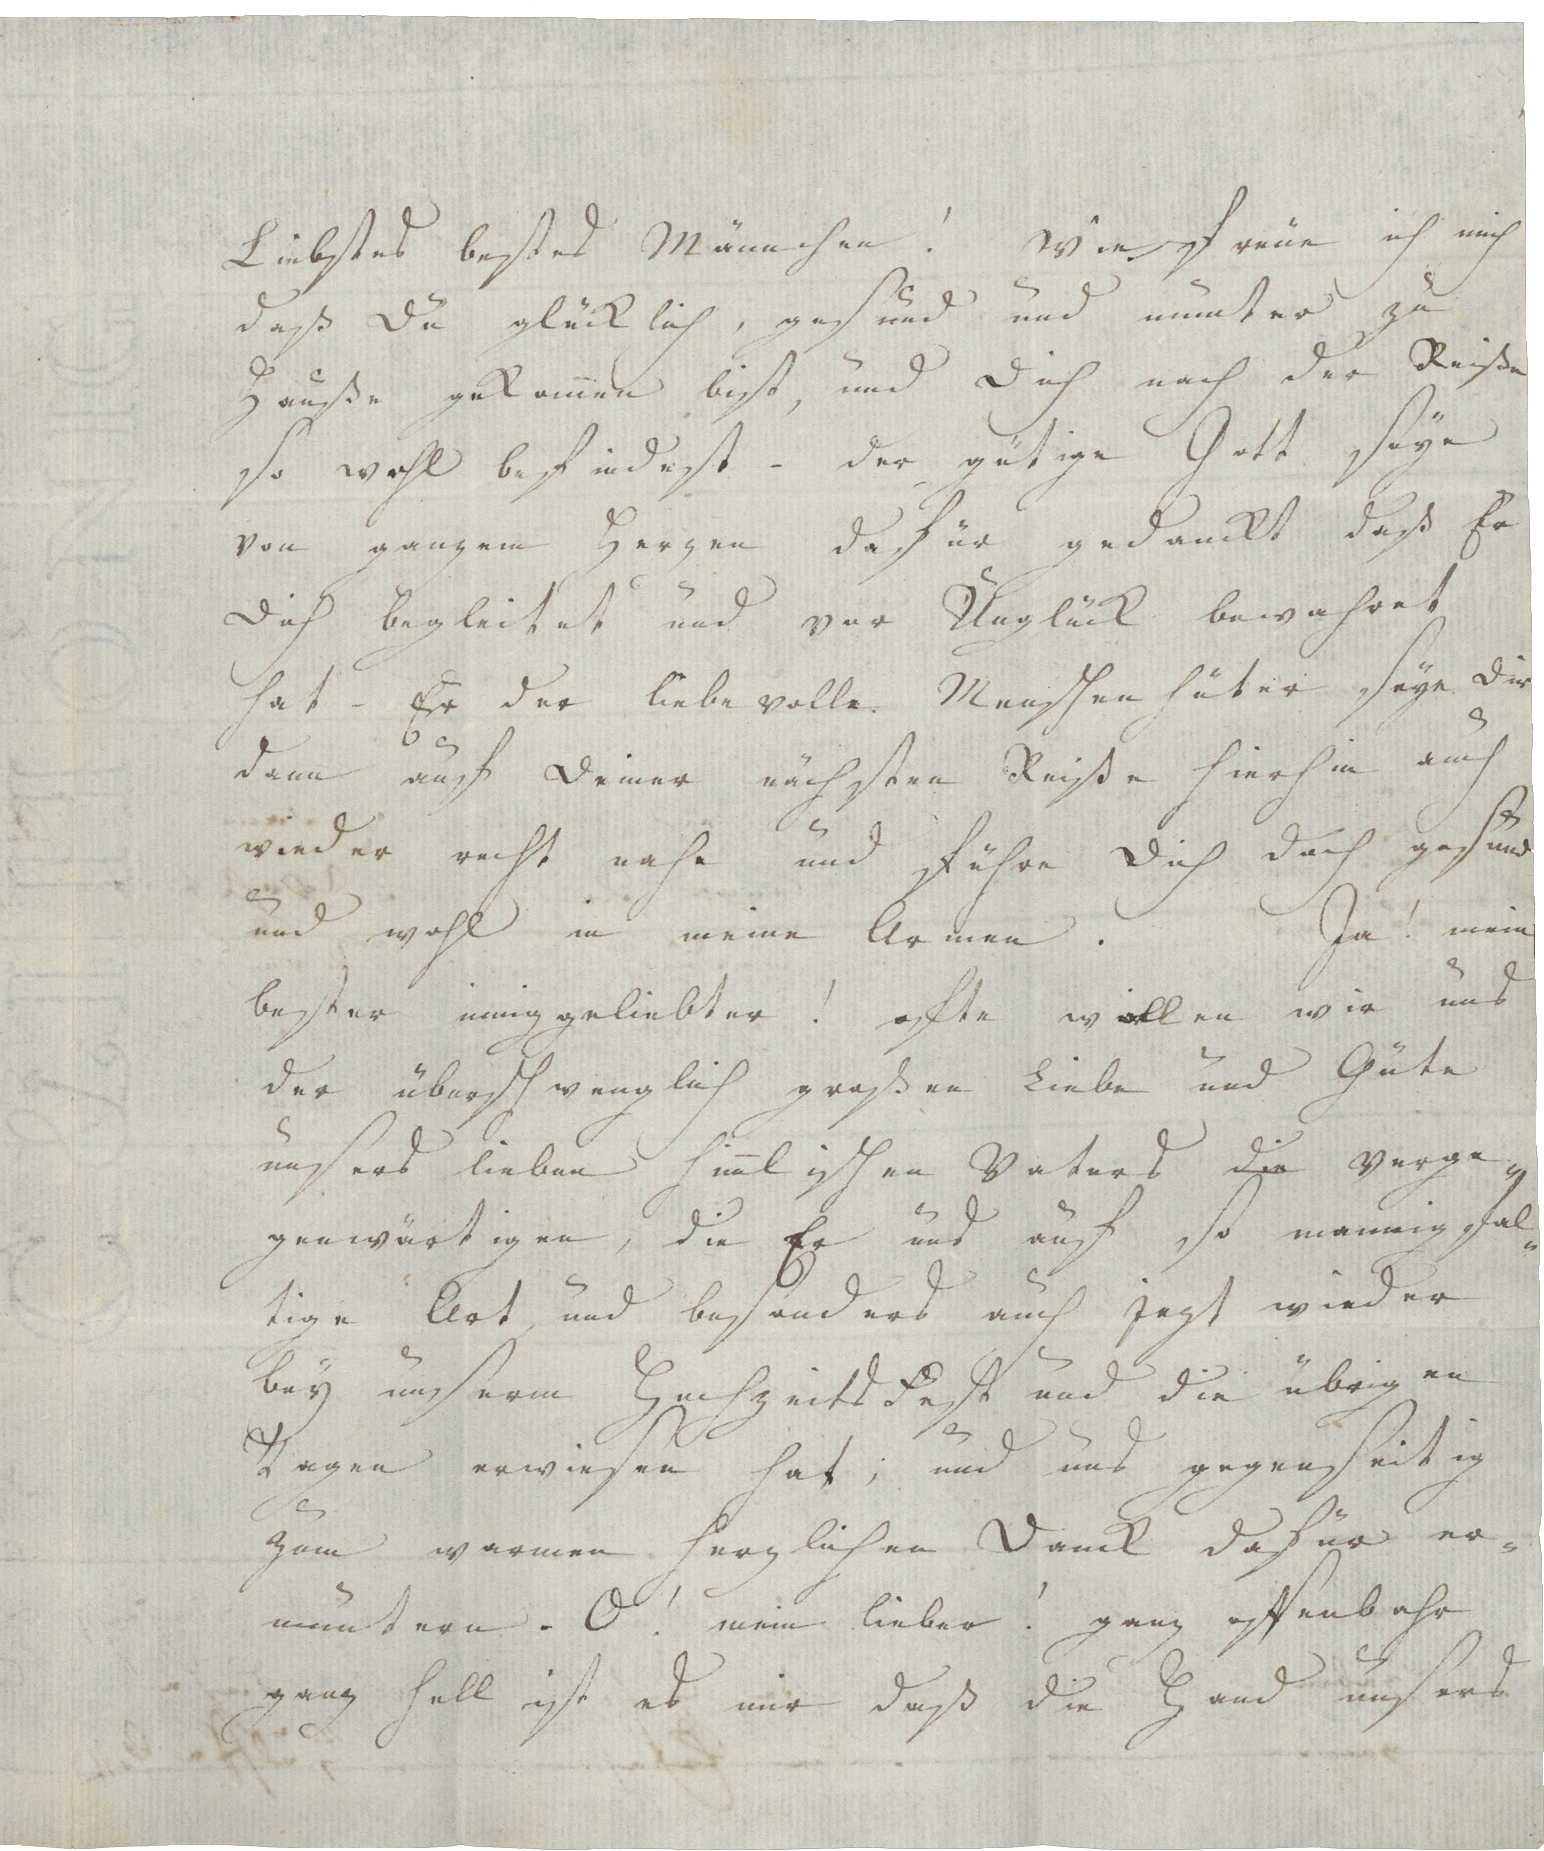 Liebstes bestes Männchen! Wie freue ich mich
daß Du glücklich, gesund und munter zu
Hauße gekom̄en bist, und Dich nach der Reiße
so wohl befindest - der gütige Gott seÿe
von ganzem Herzen dafür gedanckt daß Er
Dich begleitet und vor Unglück bewahret
hat - Er der liebevolle Menschenhüter seÿe Dir
dann auf Deiner nächsten Reiße hierhin auch
wieder recht nahe und führe Dich doch gesund
und wohl in meine Armen. Ja! mein
bester inniggeliebter! ofte wollen wir uns
der überschwenglich großen Liebe und Güte
unsers lieben him̄lischen Vaters die verge„
genwärtigen, die Er uns auf so mannigfal„
tige Art und besonders auch jezt wieder
beÿ unserm Hochzeits Fest und die übrigen
Tagen erwiesen hat; und uns gegenseitig
zum warmen herzlichen Danck dafür er„
muntern - O! mein lieber! ganz offenbahr
ganz hell ist es mir daß die Hand unsers